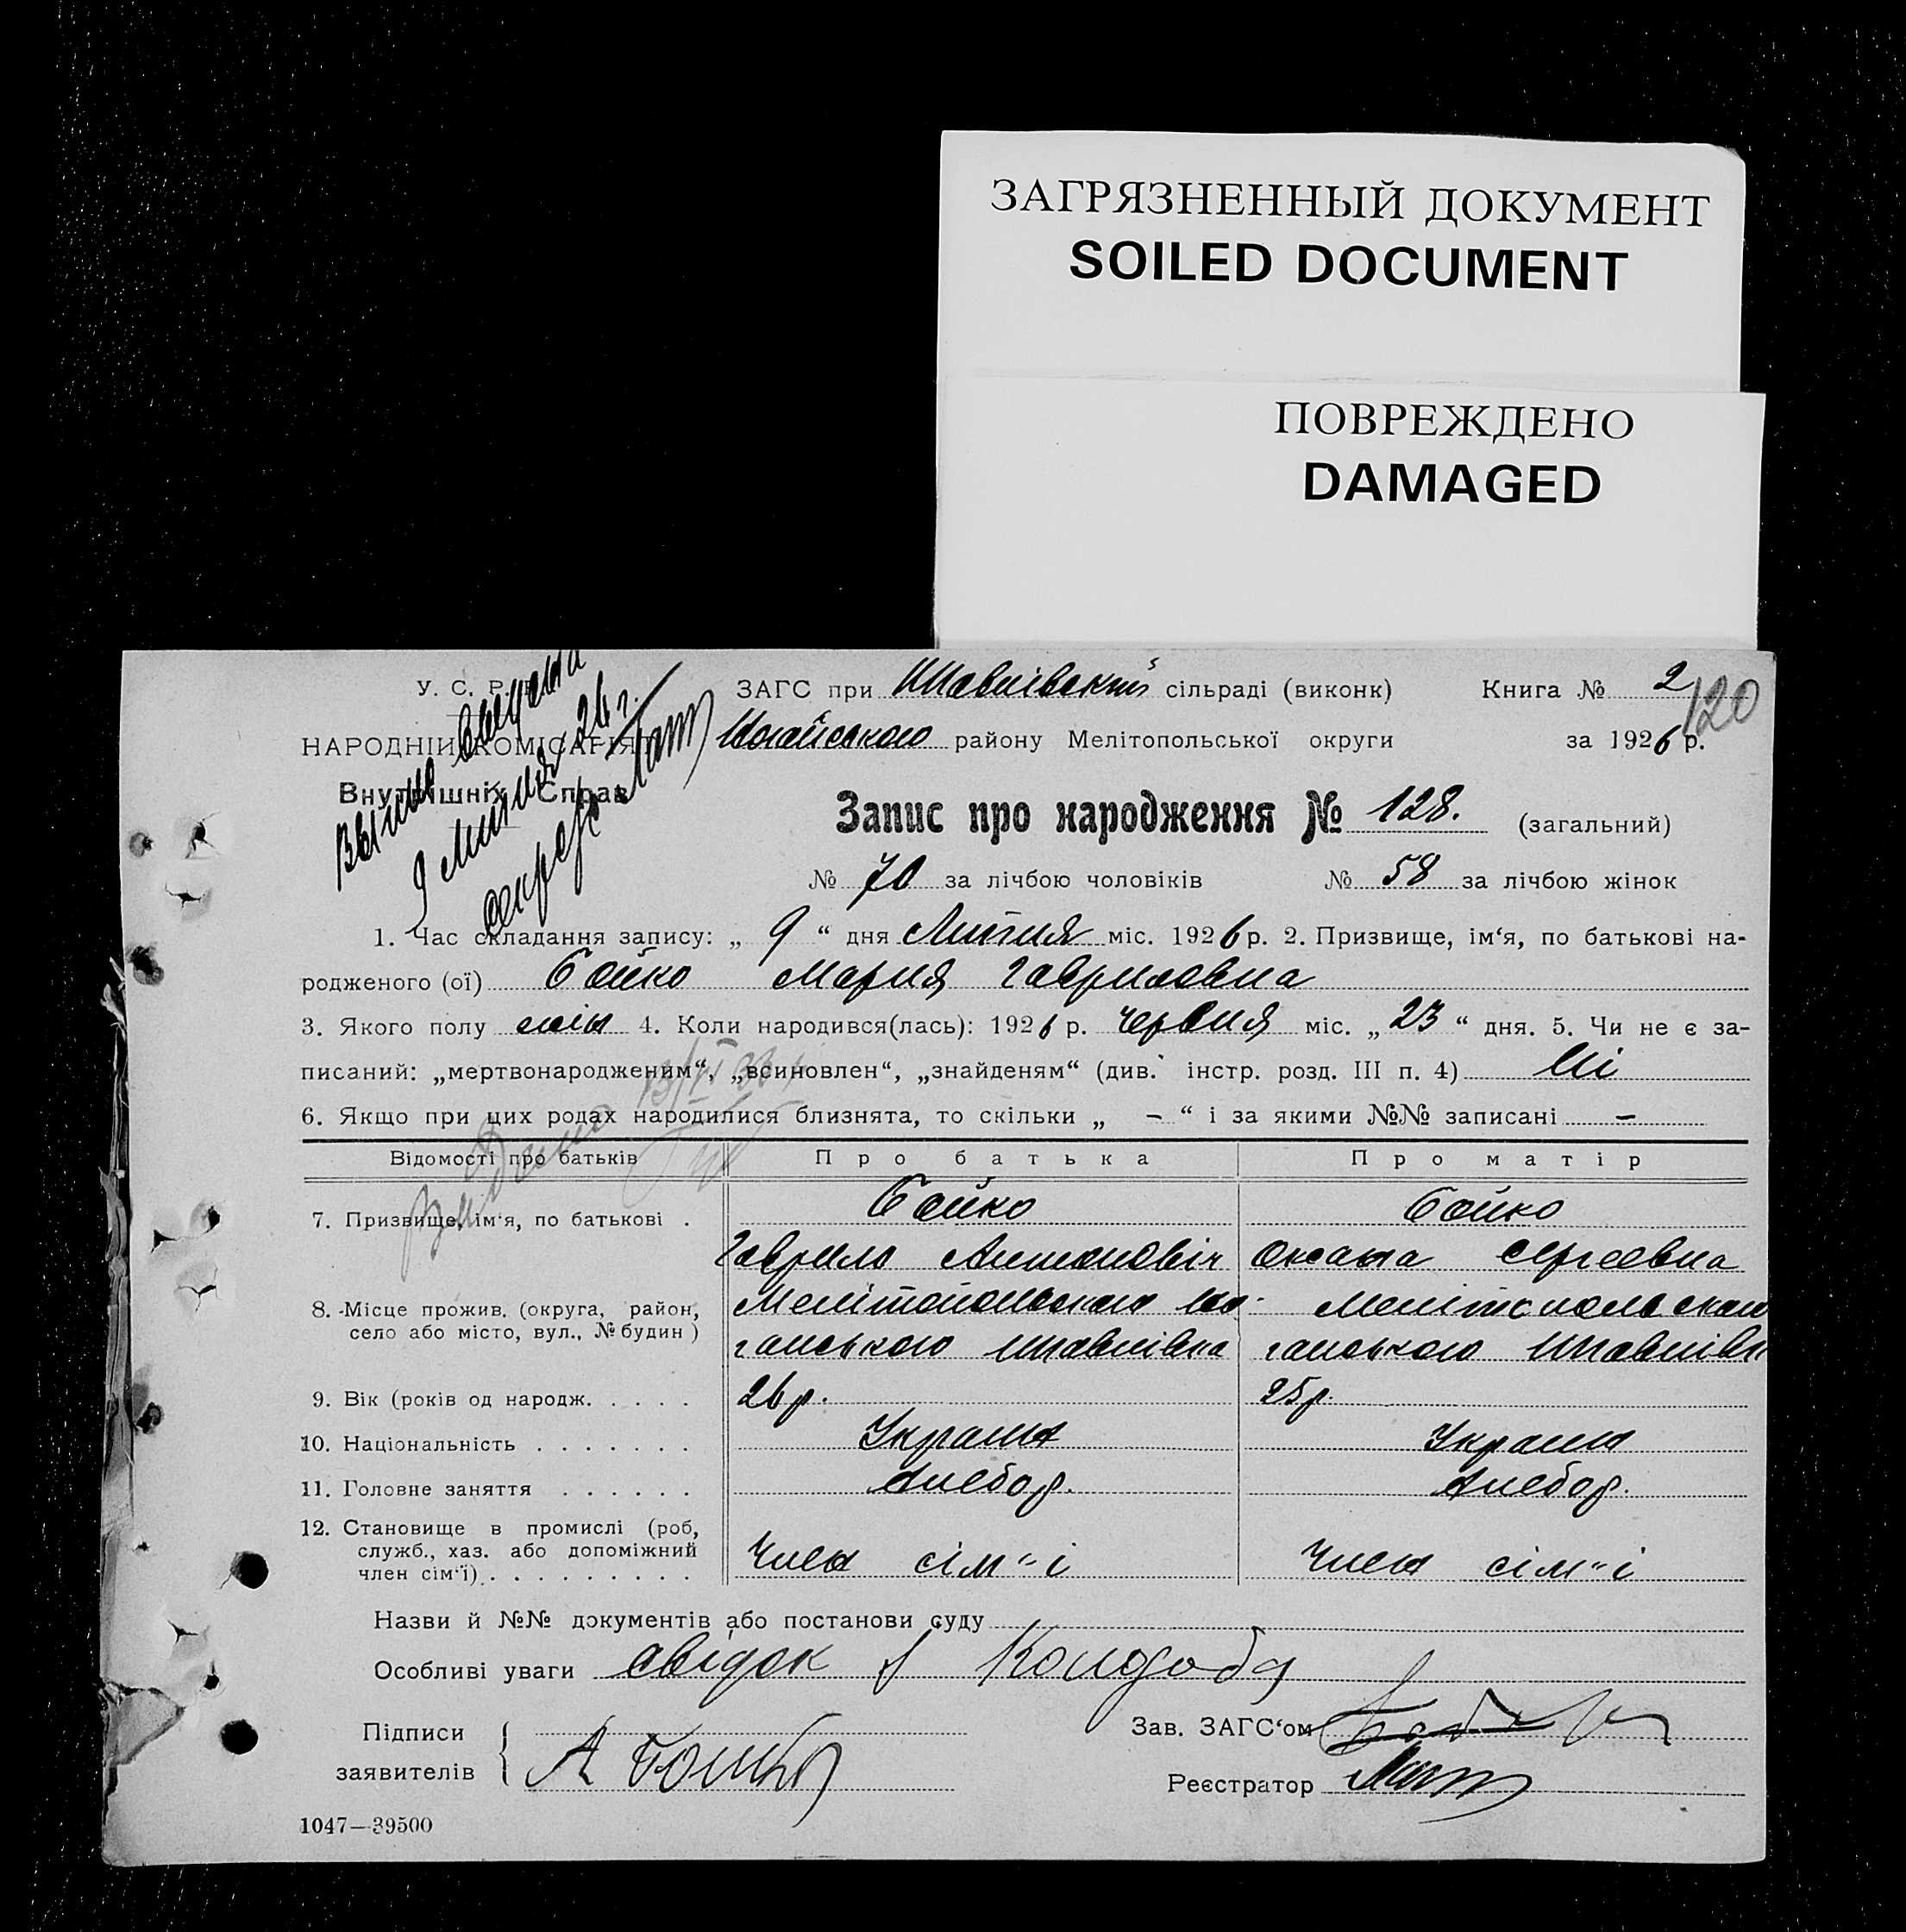 ЗАГРЯЗНЕННЫЙ ДОКУМЕНТ
SOILED DOCUMENT
ПОВРЕЖДЕНО
DAMAGED
У. С. Р. Р.
НАРОДНІЙ КОМІСАРІЯТ
Внутрішніх Справ
9 26 г.
ЗАГС при сільраді (виконк) Книга № 2
120
району Мелітопольської округи за 1926 р.
Запис про народження № 128. (загальний)
№ 70 за лічбою чоловіків № 58 за лічбою жінок
1. Час складання запису: „ 9 “ дня Липня міс. 1926 р. 2. Призвище, ім‘я, по батькові на-
родженого (ої) Бойко Мария Гавриловна
3. Якого полу жін 4. Коли народився(лась): 1926 р. Червня міс. „ 23 “ дня. 5. Чи не є за-
писаний: „мертвонародженим“, „всиновлен“, „знайденям“ (див. інстр. розд. III п. 4) Ні
6. Якщо при цих родах народилися близнята, то скільки „ – “ і за якими №№ записані –
Відомості про батьків Про батька Про матір
7. Призвище, ім‘я, по батькові . Бойко Бойко
Гаврило Антоновіч Оксана Сергеевна
8. Місце прожив. (округа, район,
село або місто, вул., № будин )
9. Вік (років од народж. . . . . 26 р. 25 р.
10. Національність . . . . . . . Україн Україн
11. Головне заняття . . . . . . Хлебор. Хлебор.
12. Становище в промислі (роб,
служб., хаз. або допоміжний
член сім‘ї) . . . . . . . . . Член сім"і Член сім"і
Назви й №№ документів або постанови суду
Особливі уваги свідок Колодоба
Підписи
заявителів А Бойко
Зав. ЗАГС‘ом
Реєстратор
1047—39500